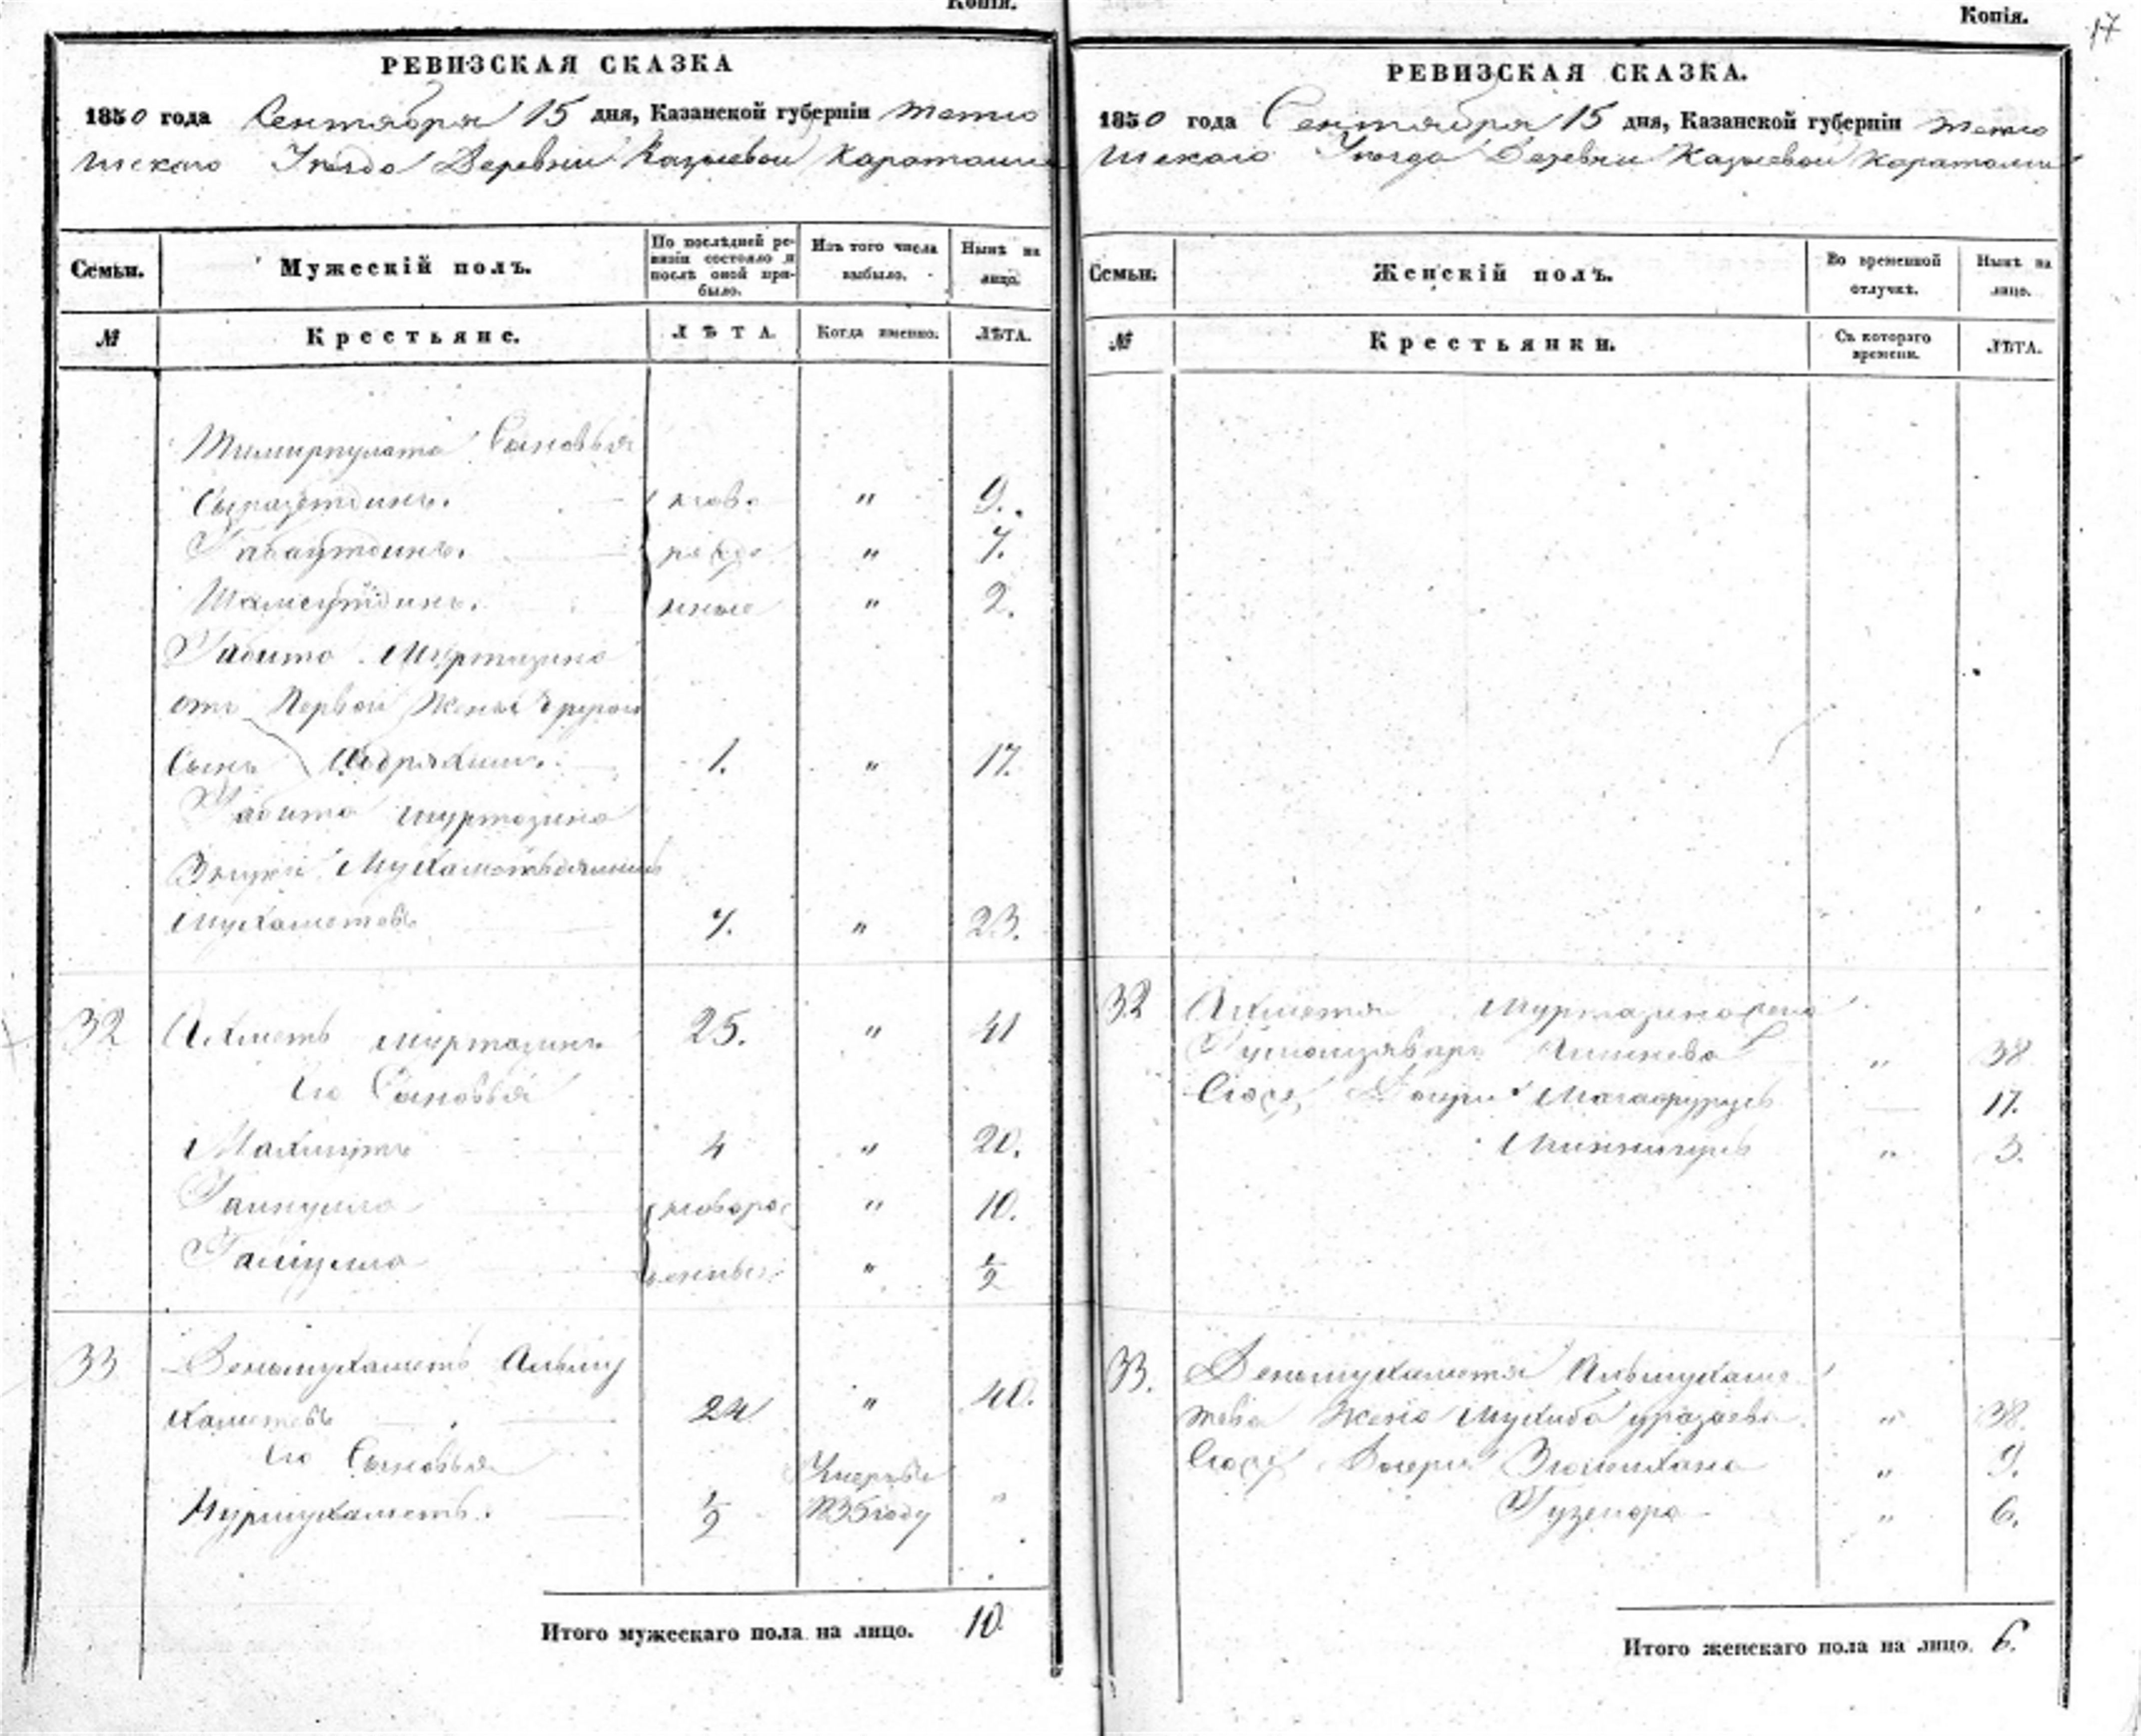 Копія.
РЕВИЗСКАЯ СКАЗКА
1850 года Сентября 15 дня, Казанской губерніи тетю
шскаго Уѣзда Деревни Казыевой Караталги
Семьи.
Мужескій полъ.
По послѣдней ре-
визіи состояло и
послѣ оной при-
было.
Изъ того числа
выбыло.
Нынѣ на
лицо.
№
Крестьяне.
ЛѢТА.
Когда именно.
ЛѢТА.
Тимирпулата Сыновья
Сыразетдинъ. ново „ 9.
Габаутдинъ. рожде „ 7.
Шамсутдинъ. нные „ 2.
Габита Муртазина
отъ Первой Жены
Сынъ 1. „ 17.
Габита муртазина
Мухаметов 7. „ 23.
32 Ахметь муртазинъ 25. „ 41
Его Сыновья
Махмутъ 4 „ 20.
Гайнулла новорож „ 10.
Галиулла „ ½
33 Деньмухаметь Альму
хаметевъ 24 „ 40.
Его Сыновья
Нурмухаметь. ½ Умеръ въ 1835 году „
Итого мужескаго пола на лицо. 10.
Копія.
17
РЕВИЗСКАЯ СКАЗКА.
1850 года Сентября 15 дня, Казанской губерніи тетю
шскаго Уѣзда Деревни Казыевой Караталги
Семьи.
Женскій полъ.
Во временной
отлучкѣ.
Нынѣ на
лицо.
№
Крестьянки.
Съ котораго
времени.
ЛѢТА.
32 Ахметя Муртазина жена
„ 38
Дочери 17.
„ 3.
33. Деньмухаметя Альмухаме
тева Жена Мухиба уразаева „ 38.
Дочери „ 9.
„ 6.
Итого женскаго пола на лицо. 6.